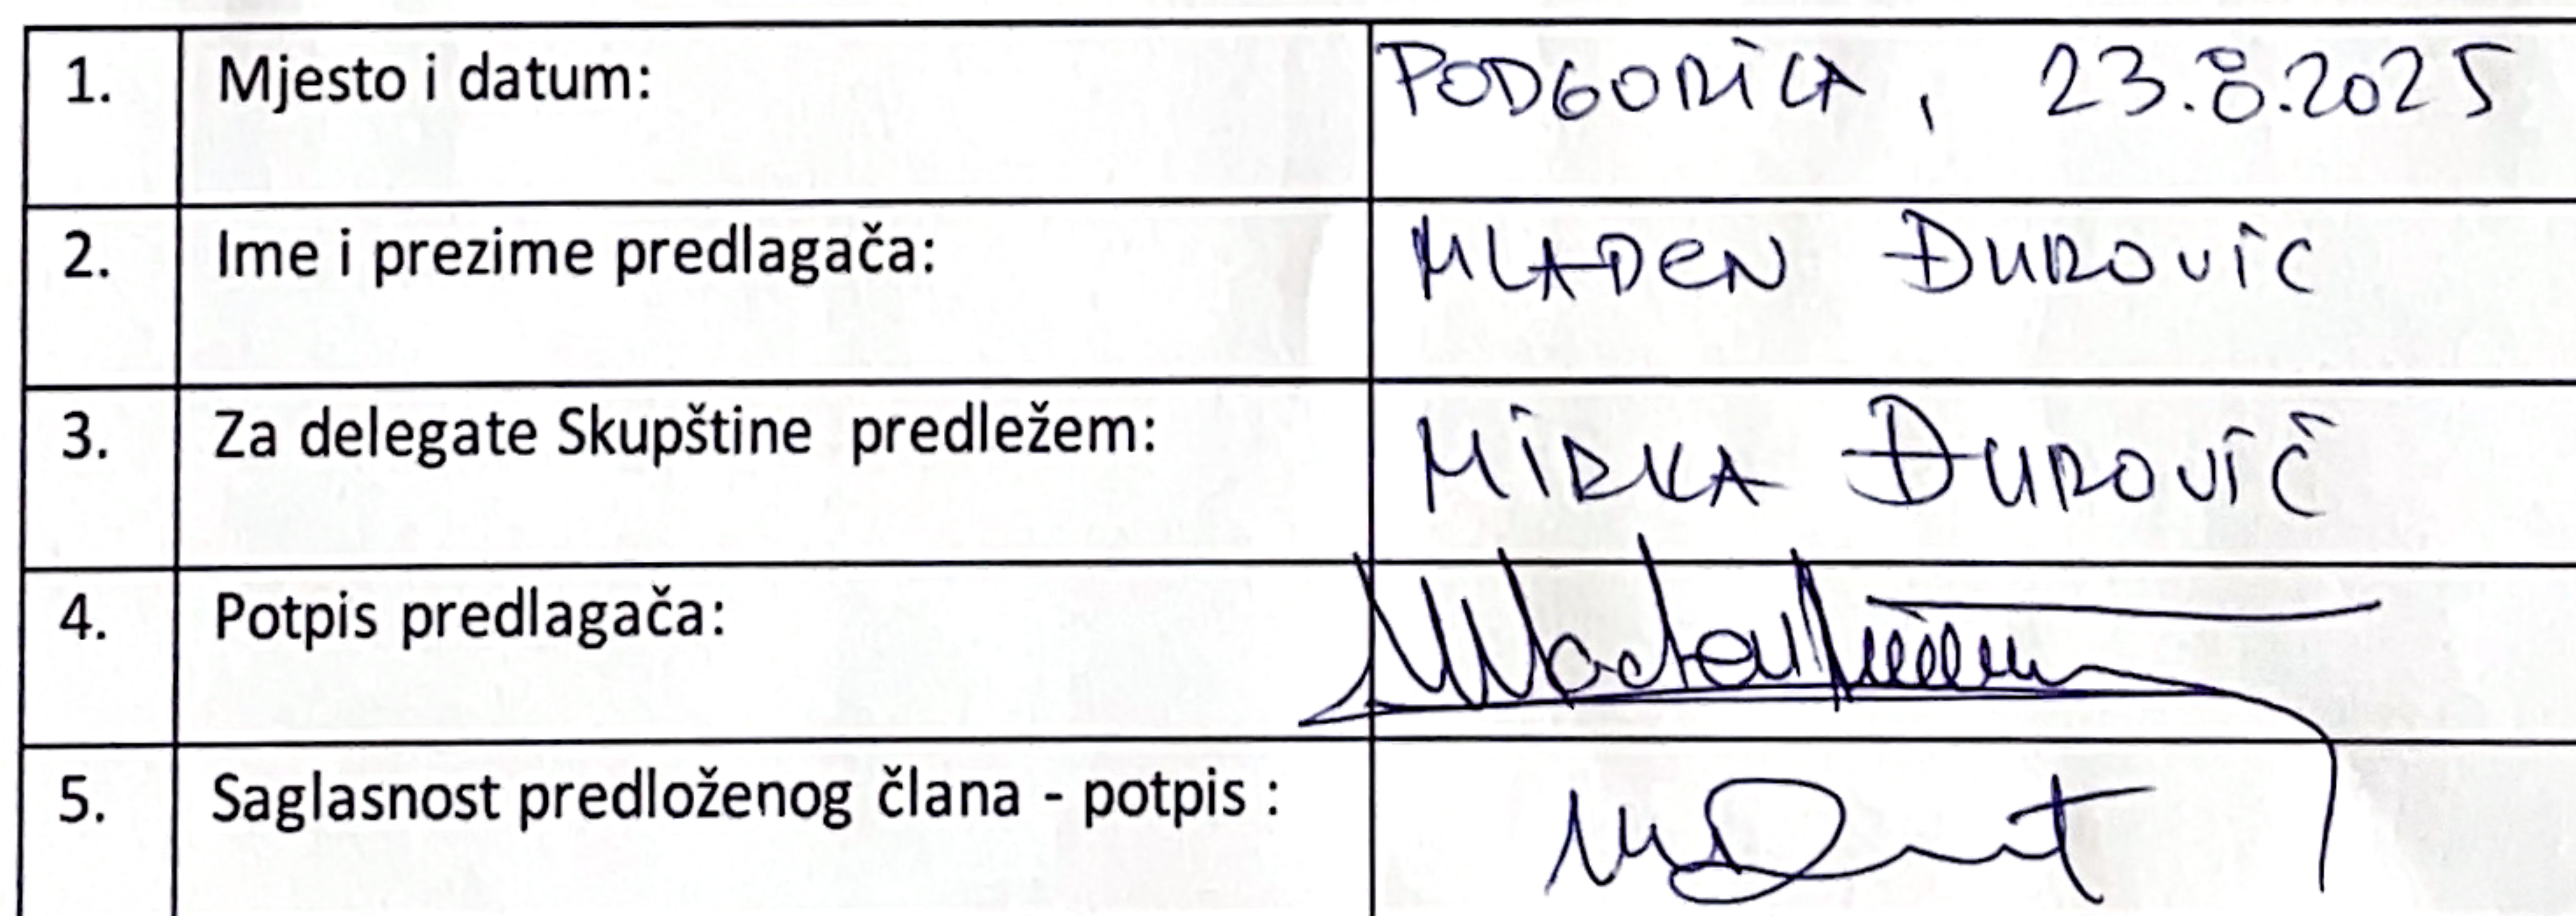 1. Mjesto i datum: PODGORICA, 23.8.2025
2. Ime i prezime predlagača: MLADEN ĐUROVIC
3. Za delegate Skupštine predležem: MIRKA ĐUROVIĆ
4. Potpis predlagača: Mladen
5. Saglasnost predloženog člana - potpis :